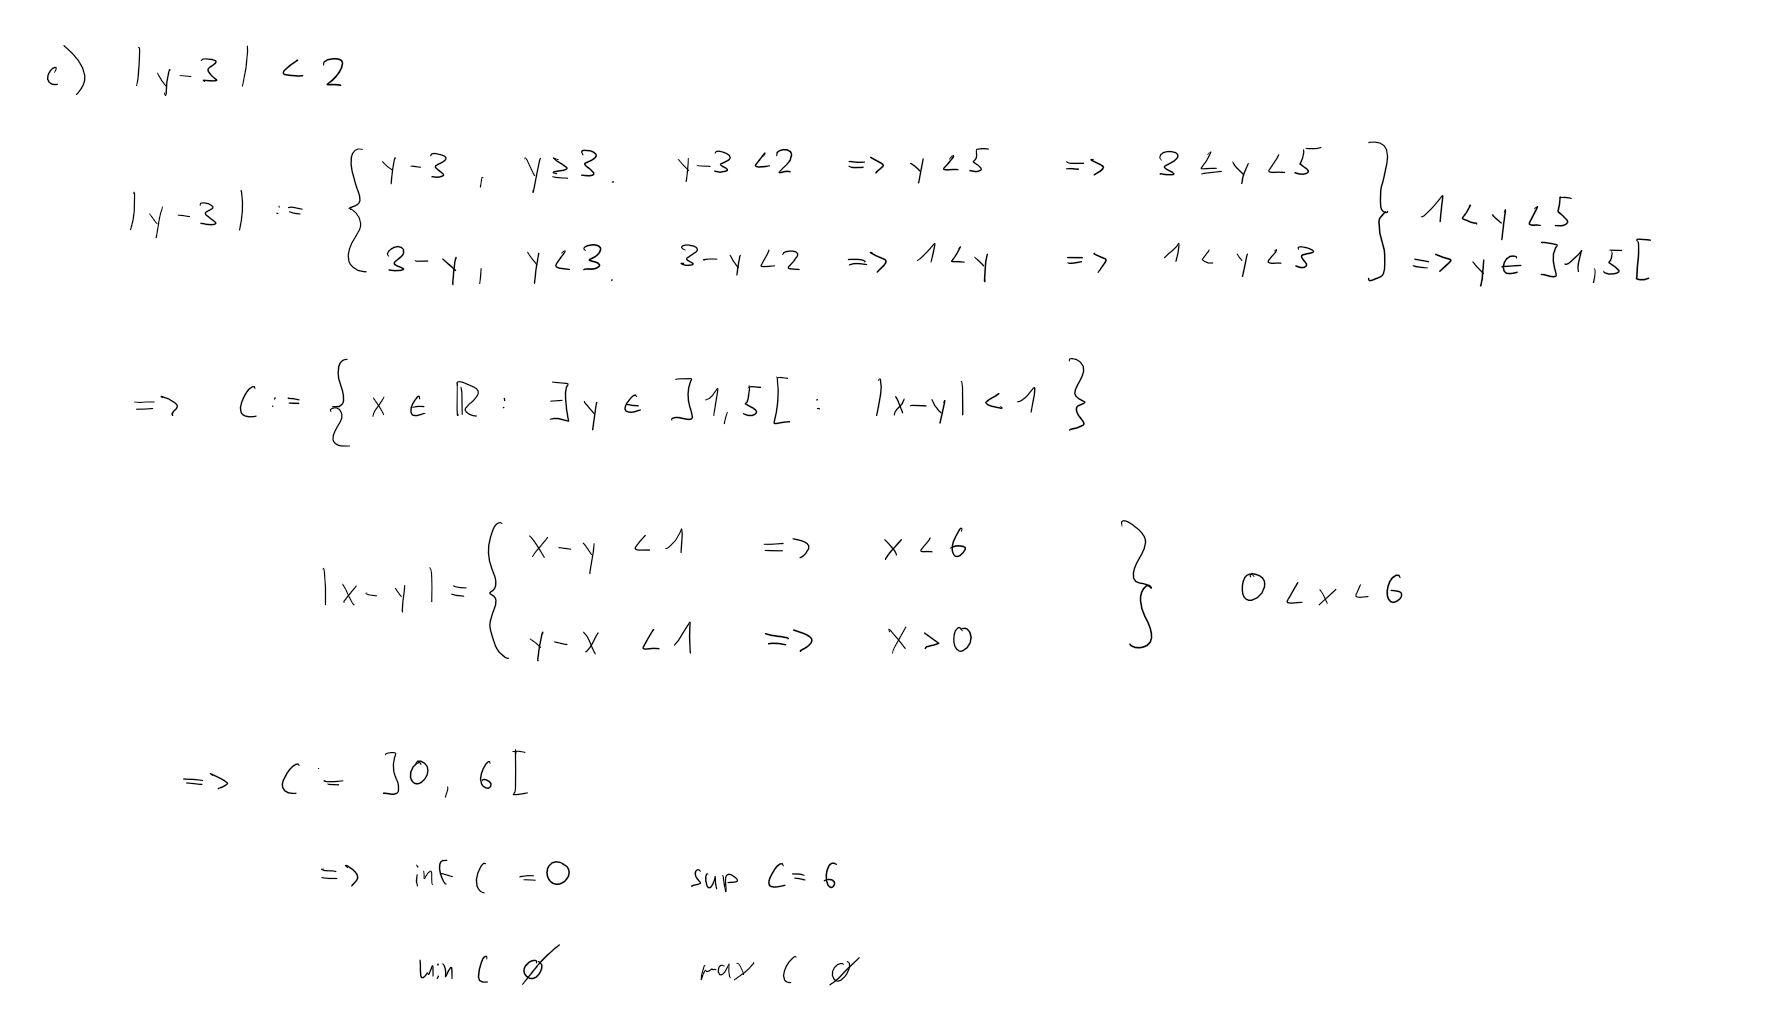 c) |y-3| < 2
|y-3| := { y-3 , y≥3. y-3 <2 => y <5 => 3 ≤ y <5
3-y, y<3. 3-y <2 => 1<y => 1 < y <3 } 1 < y <5
=> y ∈ ]1,5[
=> C := { x ∈ ℝ : ∃y ∈ ]1,5[ : |x-y| < 1 }
|x-y| = { x-y < 1 => x < 6
y-x < 1 => x > 0 } 0 < x < 6
=> C := ]0, 6[
=> inf C = 0 sup C = 6
min C ∅ max C ∅